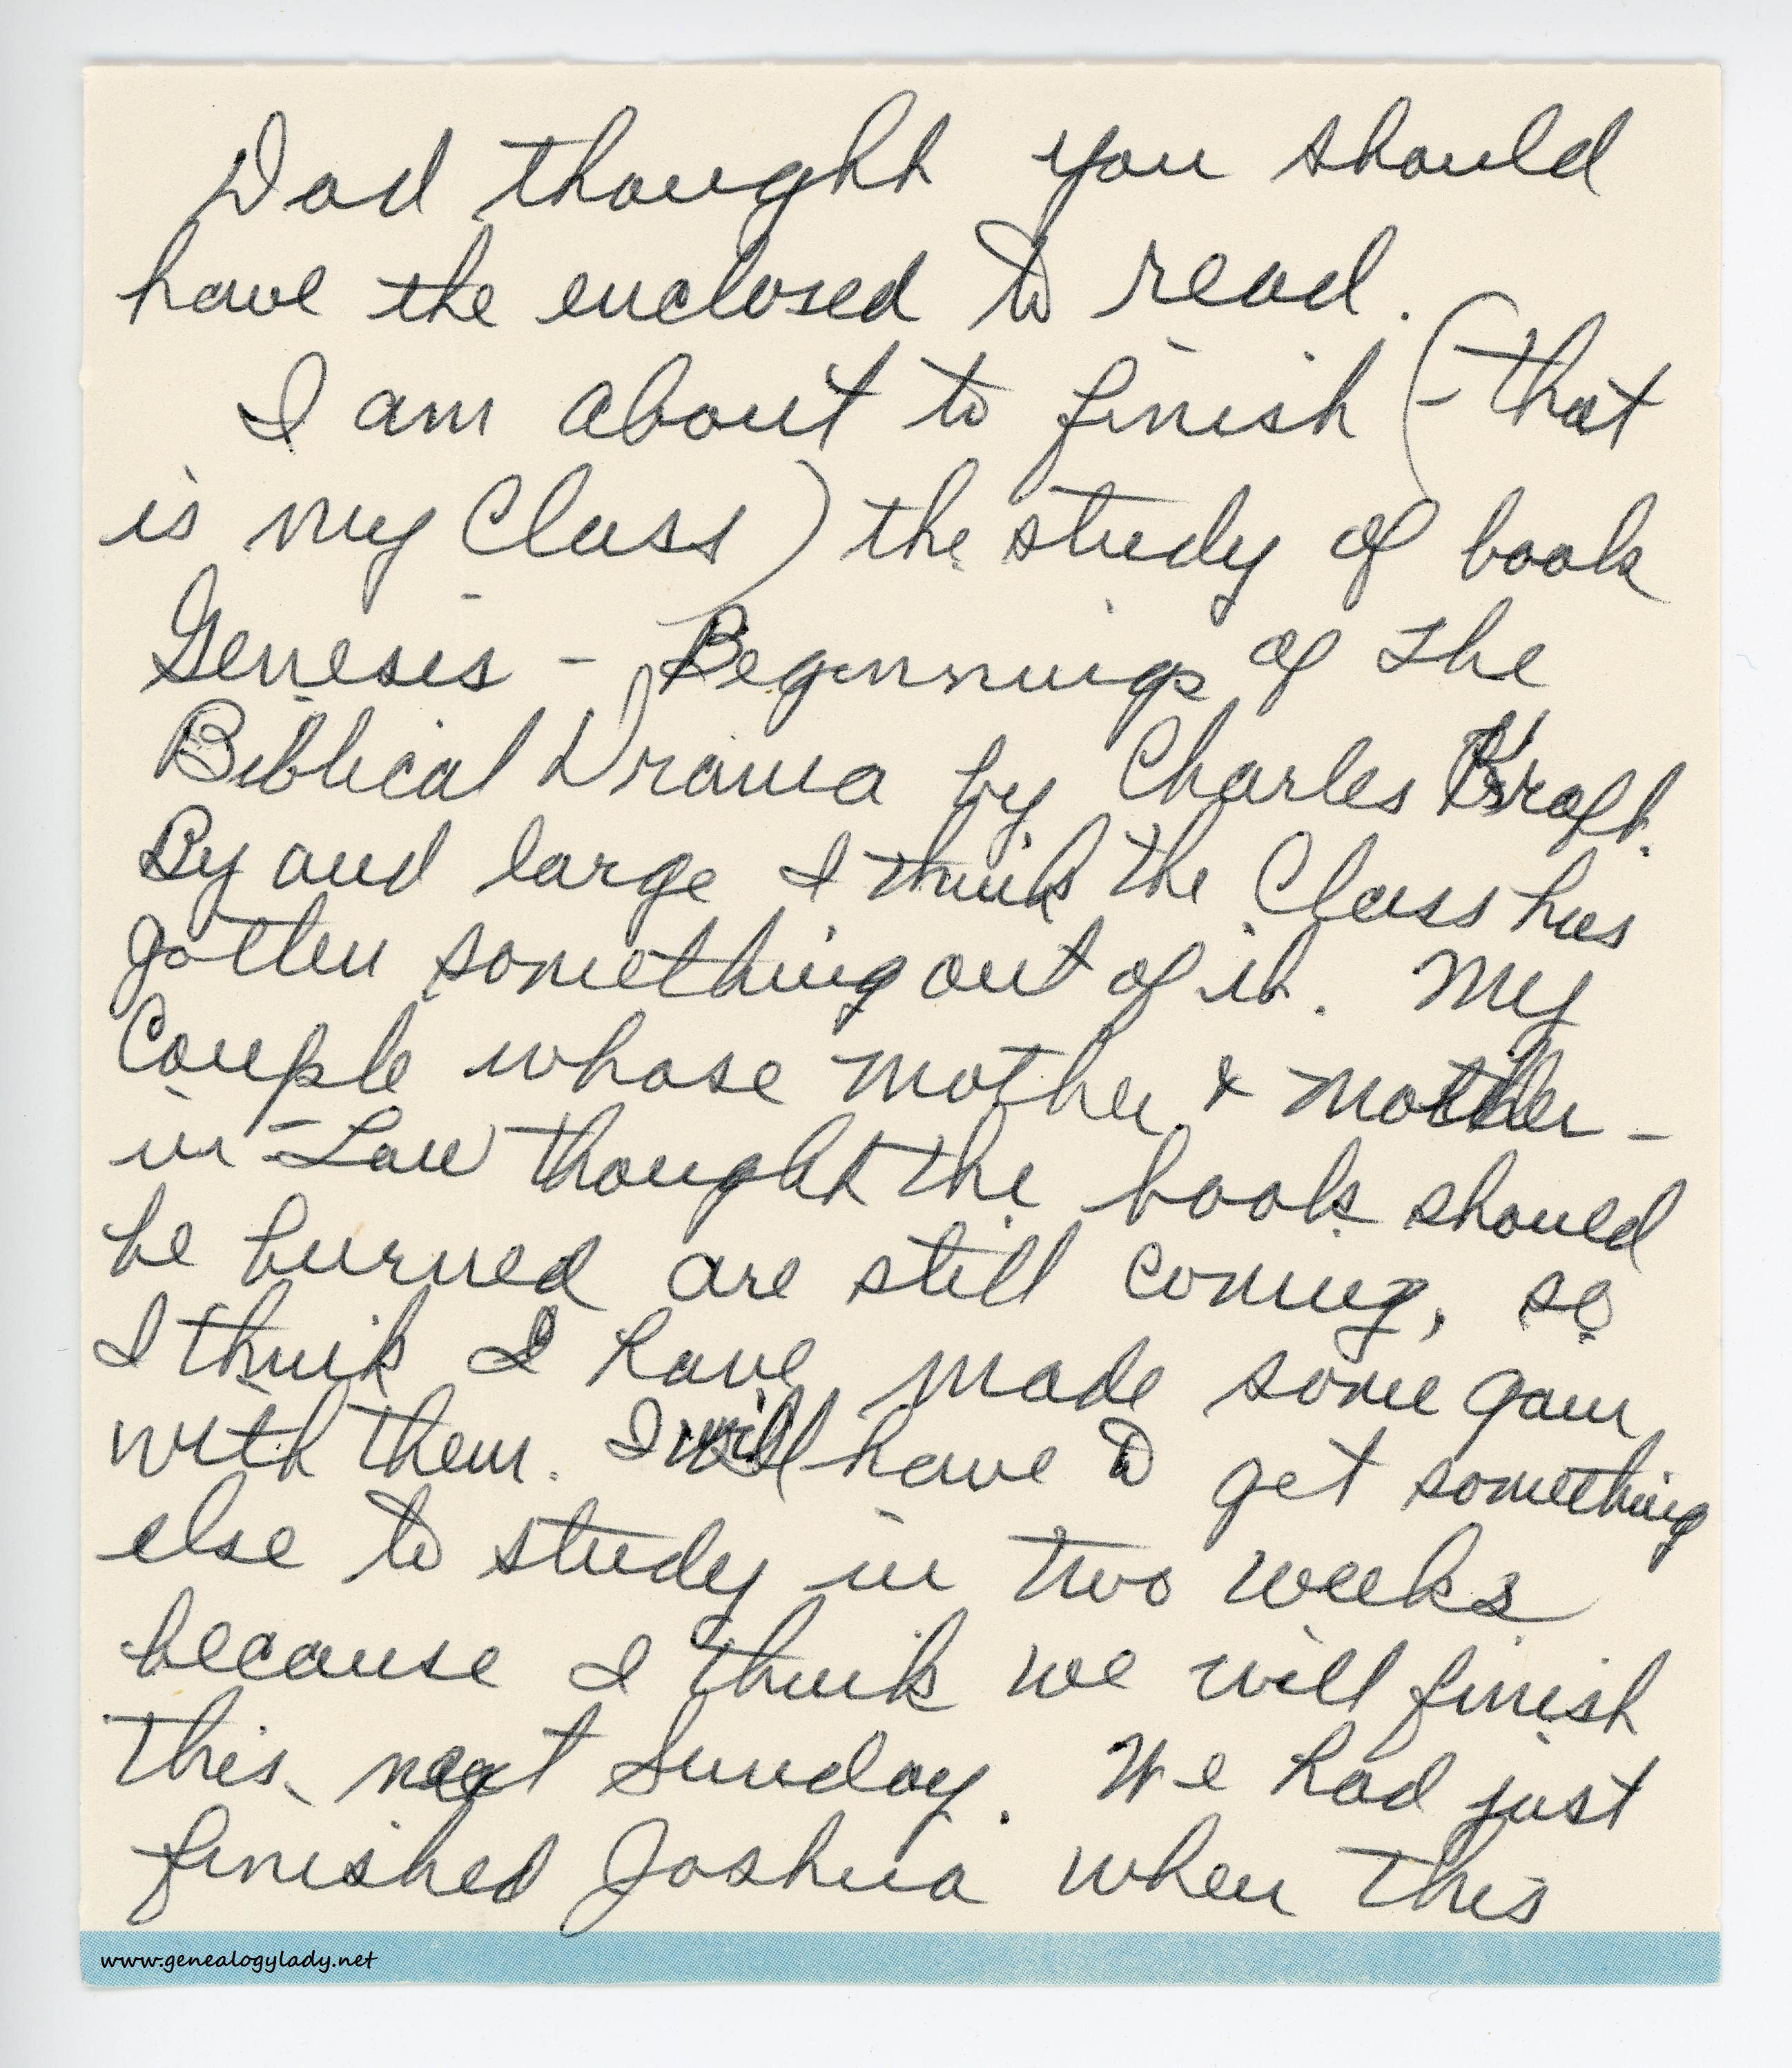 Dad thought you should
have the enclosed to read.
I am about to finish (- that
is my Class) the study of book
Genesis - Beginnings of the
Biblical Drama by Charles Kraft.
By and large I think the Class has
gotten something out of it. My
Couple whose mother & mother-
in-Law thought the book should
be burned are still coming, so
I think I have made some gain
with them. I will have to get something
else to study in two weeks
because I think we will finish
this next Sunday. We had just
finished Joshua when this
www.genealogylady.net